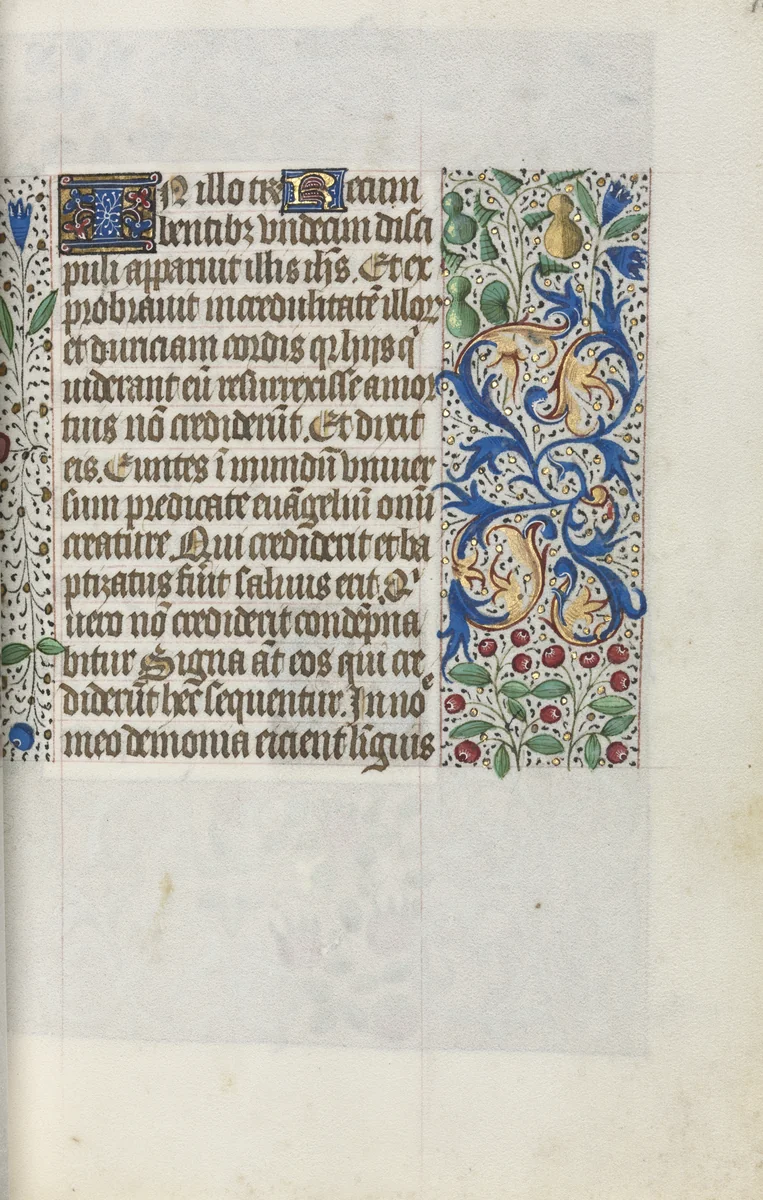 IN illo tꝑe Recum
bentibꝫ vndecim disci
puli apparuit illis ihs̄. Et ex
probrauit incredulitatē illoꝝ
et duriciam cordis qꝛ hijs q̄
uiderant eū resurrexisse a mor
tuis nō crediderūt. Et dixit
eis. Euntes ī mundū vniuer
sum predicate euāgeliū omī
creature Qui crediderit et ba
ptizatus fūit saluus erit. Qͥ
uero nō crediderit condēpna
bitur Signa aūt eos qui cre
diderūt hec sequentur. In noīe
meo demonia eicient līguis